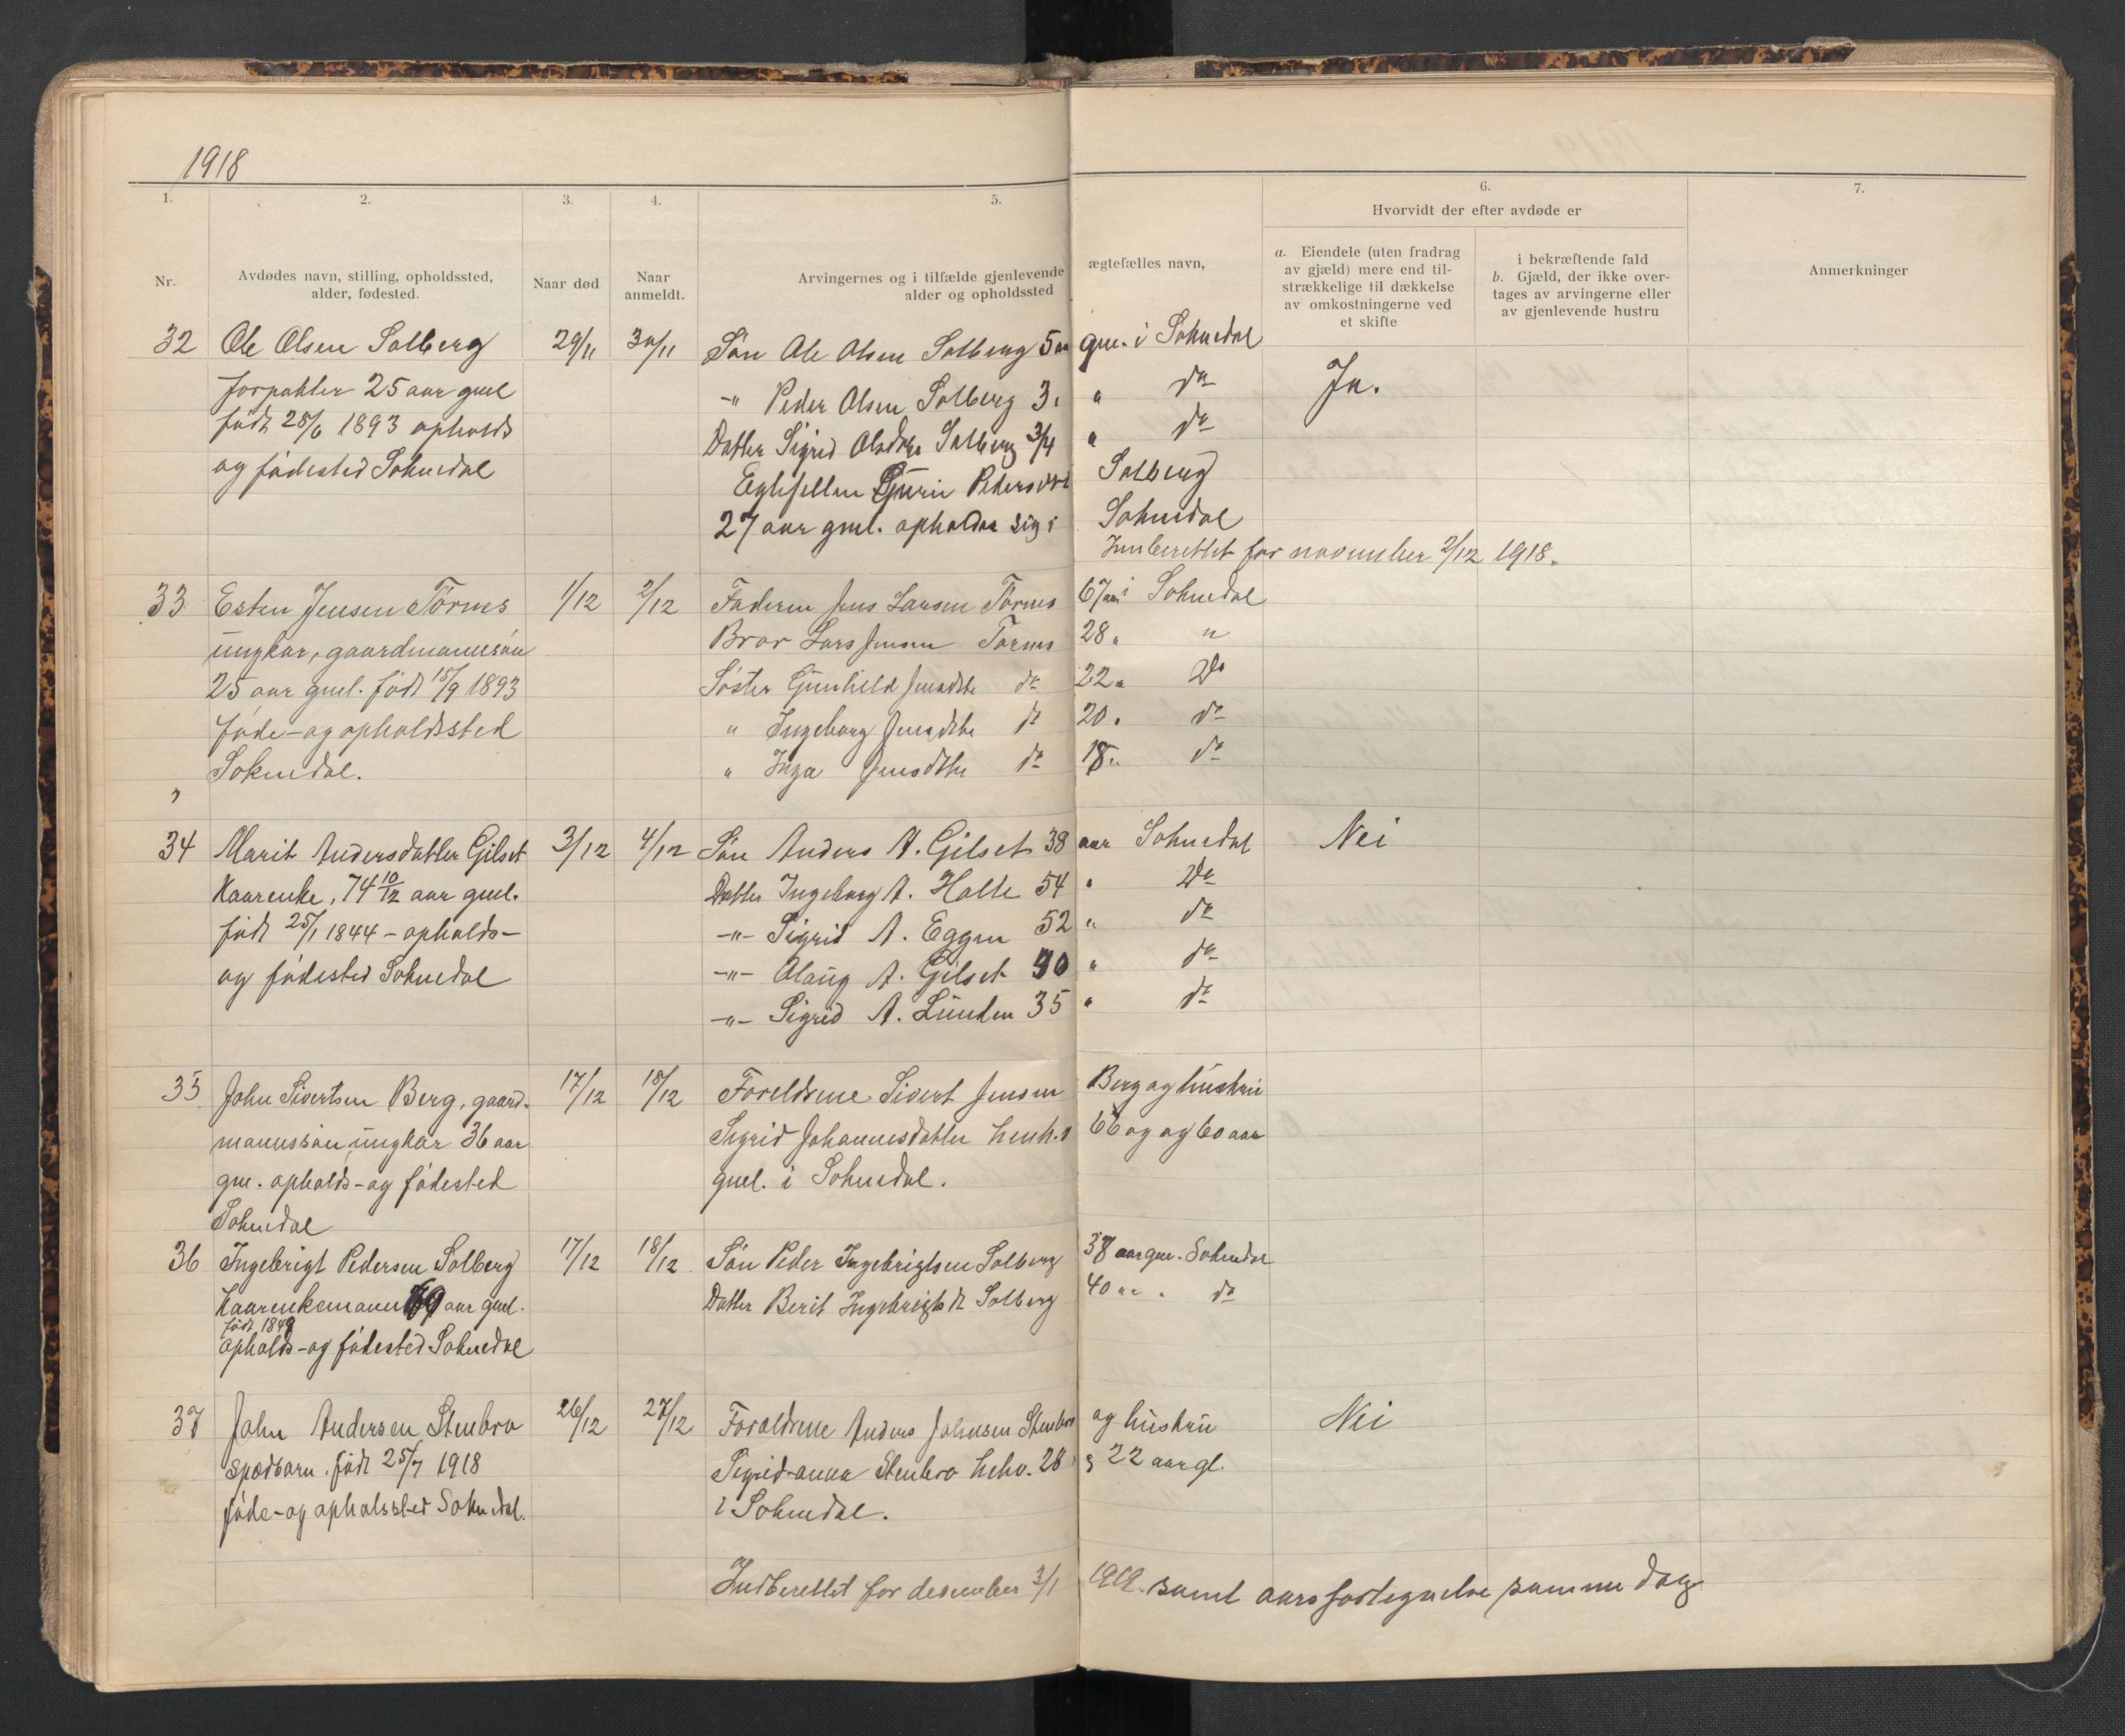 1918
1. 2. 3. 4. 5. 6. 7.
Hvorvidt der efter avdøde er
Nr. Avdødes navn, stilling, opholdssted, alder, fødested. Naar død Naar anmeldt. Arvingernes og i tilfælde gjenlevende ægtefælles navn, alder og opholdssted
a. Eiendele (uten fradrag av gjæld) mere end tilstrækkelige til dækkelse av omkostningerne ved et skifte
i bekræftende fald b. Gjæld, der ikke overtages av arvingerne eller av gjenlevende hustru
Anmerkninger
32 Ole Olsen Solberg 29/11 30/11 Søn Ole Olsen Solberg 5 aar gml. i Soknedal
forpakter 25 aar gml -"- Peder Olsen Solberg 3 " " do Ja.
født 28/6 1893 opholds Datter Sigrid Olsdtr Solberg 3/4 " do
og fødested Soknedal Egtefellen Guru Pedersdtr Solberg
27 aar gml. opholder sig i Soknedal
Innberettet for november 2/12 1918.
33 Esten Jensen Törnes 1/12 2/12 Faderen Jens Larsen Törnes 67 aar i Soknedal
ungkar, gaardmannssøn Bror Lars Jensen Tørnes 28 " "
25 aar gml. født 18/9 1893 Søster Gunhild Jensdtr do 22 " Do
føde-og opholdssted " Ingeborg Jensdtr do 20 " do
Soknedal. " Inga Jensdtr do 18 " do
34 Marit Andersdatter Gilset 3/12 4/12 Søn Anders A. Gilset 38 aar Soknedal Nei
Kaarenke, 74 10/12 aar gml. Datter Ingeborg A. Holte 54 " Do
født 25/1 1844 - opholds- -"- Sigrid A. Eggen 52 " do
og fødested Soknedal -"- Olaug A. Gilset 40 " do
-"- Sigrid A. Lunden 35 " do
35 John Sivertsen Berg, gaard- 17/12 18/12 Foreldrene Sivert Jensen Berg og hustru
mannssøn ungkar 36 aar Sigrid Johannesdatter henh.v 66 og og 60 aar
gm. opholds-og fødested gml. i Soknedal.
Soknedal
36 Ingebrigt Pedersen Solberg 17/12 18/12 Søn Peder Ingebrigtsen Solberg 38 aar gm. Soknedal
Kaarenkemann 69 aar gml. Datter Berit Ingebrigtsdt Solberg 40 " " do
født 1849
opholds-og fødested Soknedal
37 John Andersen Stenbro 26/12 27/12 Foraldrene Anders Johnsen Stenbro og hustru Nei
spædbarn, født 25/7 1918 Sigrid-anna Stenbro hehv. 28 og 22 aar gl.
føde-og opholssted Soknedal. i Soknedal.
Indberettet for desember 3/1 1919. samt aarsfortegnelse samme dag